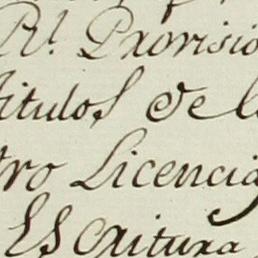 Rl. Provisio
titulos de l
tro Licencia
Escritura